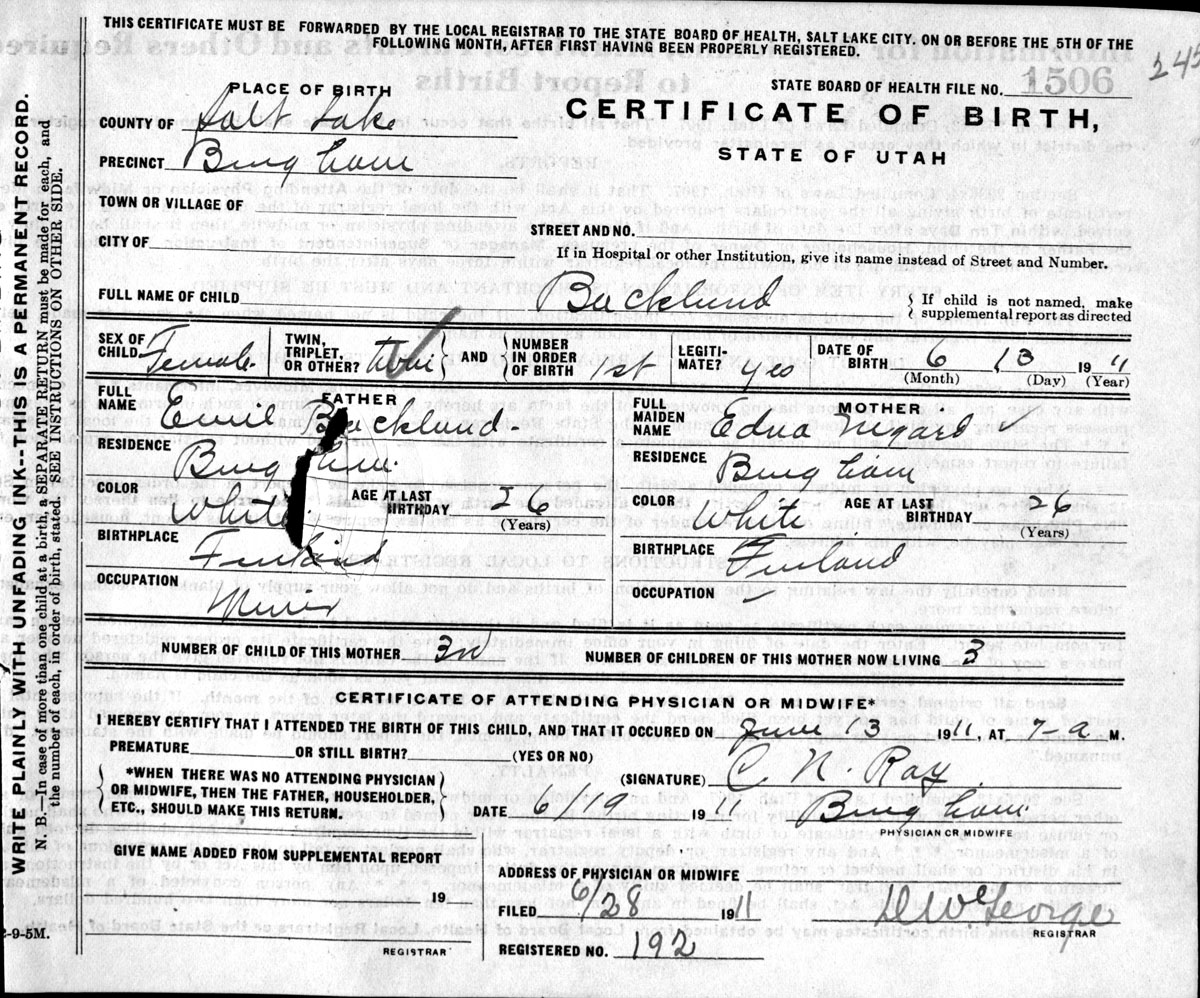 THIS CERTIFICATE MUST BE FORWARDED BY THE LOCAL REGISTRAR TO THE STATE BOARD OF HEALTH, SALT LAKE CITY, ON OR BEFORE THE 5TH OF THE
FOLLOWING MONTH, AFTER FIRST HAVING BEEN PROPERLY REGISTERED.
245
PLACE OF BIRTH
STATE BOARD OF HEALTH FILE NO. 1506
COUNTY OF Salt Lake
CERTIFICATE OF BIRTH,
PRECINCT Bingham
STATE OF UTAH
TOWN OR VILLAGE OF
STREET AND NO.
CITY OF
If in Hospital or other Institution, give its name instead of Street and Number.
FULL NAME OF CHILD Backlund
{ If child is not named, make
supplemental report as directed
SEX OF CHILD Female
TWIN, TRIPLET, OR OTHER? Twin } AND { NUMBER IN ORDER OF BIRTH 1st
LEGITIMATE? yes
DATE OF BIRTH 6 13 1911
(Month) (Day) (Year)
FATHER
FULL NAME Emil Backlund
RESIDENCE Bingham
COLOR White AGE AT LAST BIRTHDAY 26
(Years)
BIRTHPLACE Finland
OCCUPATION Miner
MOTHER
FULL MAIDEN NAME Edna
RESIDENCE Bingham
COLOR White AGE AT LAST BIRTHDAY 26
(Years)
BIRTHPLACE Finland
OCCUPATION
NUMBER OF CHILD OF THIS MOTHER 3
NUMBER OF CHILDREN OF THIS MOTHER NOW LIVING 3
CERTIFICATE OF ATTENDING PHYSICIAN OR MIDWIFE*
I HEREBY CERTIFY THAT I ATTENDED THE BIRTH OF THIS CHILD, AND THAT IT OCCURED ON June 13 1911, AT 1-a M.
PREMATURE OR STILL BIRTH? (YES OR NO)
{ *WHEN THERE WAS NO ATTENDING PHYSICIAN
OR MIDWIFE, THEN THE FATHER, HOUSEHOLDER,
ETC., SHOULD MAKE THIS RETURN. }
(SIGNATURE) C. N. Ray
DATE 6/19 1911 Bingham
PHYSICIAN OR MIDWIFE
GIVE NAME ADDED FROM SUPPLEMENTAL REPORT
19
REGISTRAR
ADDRESS OF PHYSICIAN OR MIDWIFE
FILED 6/28 1911
REGISTRAR
REGISTERED NO. 192
WRITE PLAINLY WITH UNFADING INK--THIS IS A PERMANENT RECORD.
N. B.—In case of more than one child at a birth, a SEPARATE RETURN must be made for each, and
the number of each, in order of birth, stated. SEE INSTRUCTIONS ON OTHER SIDE.
-9-5M.